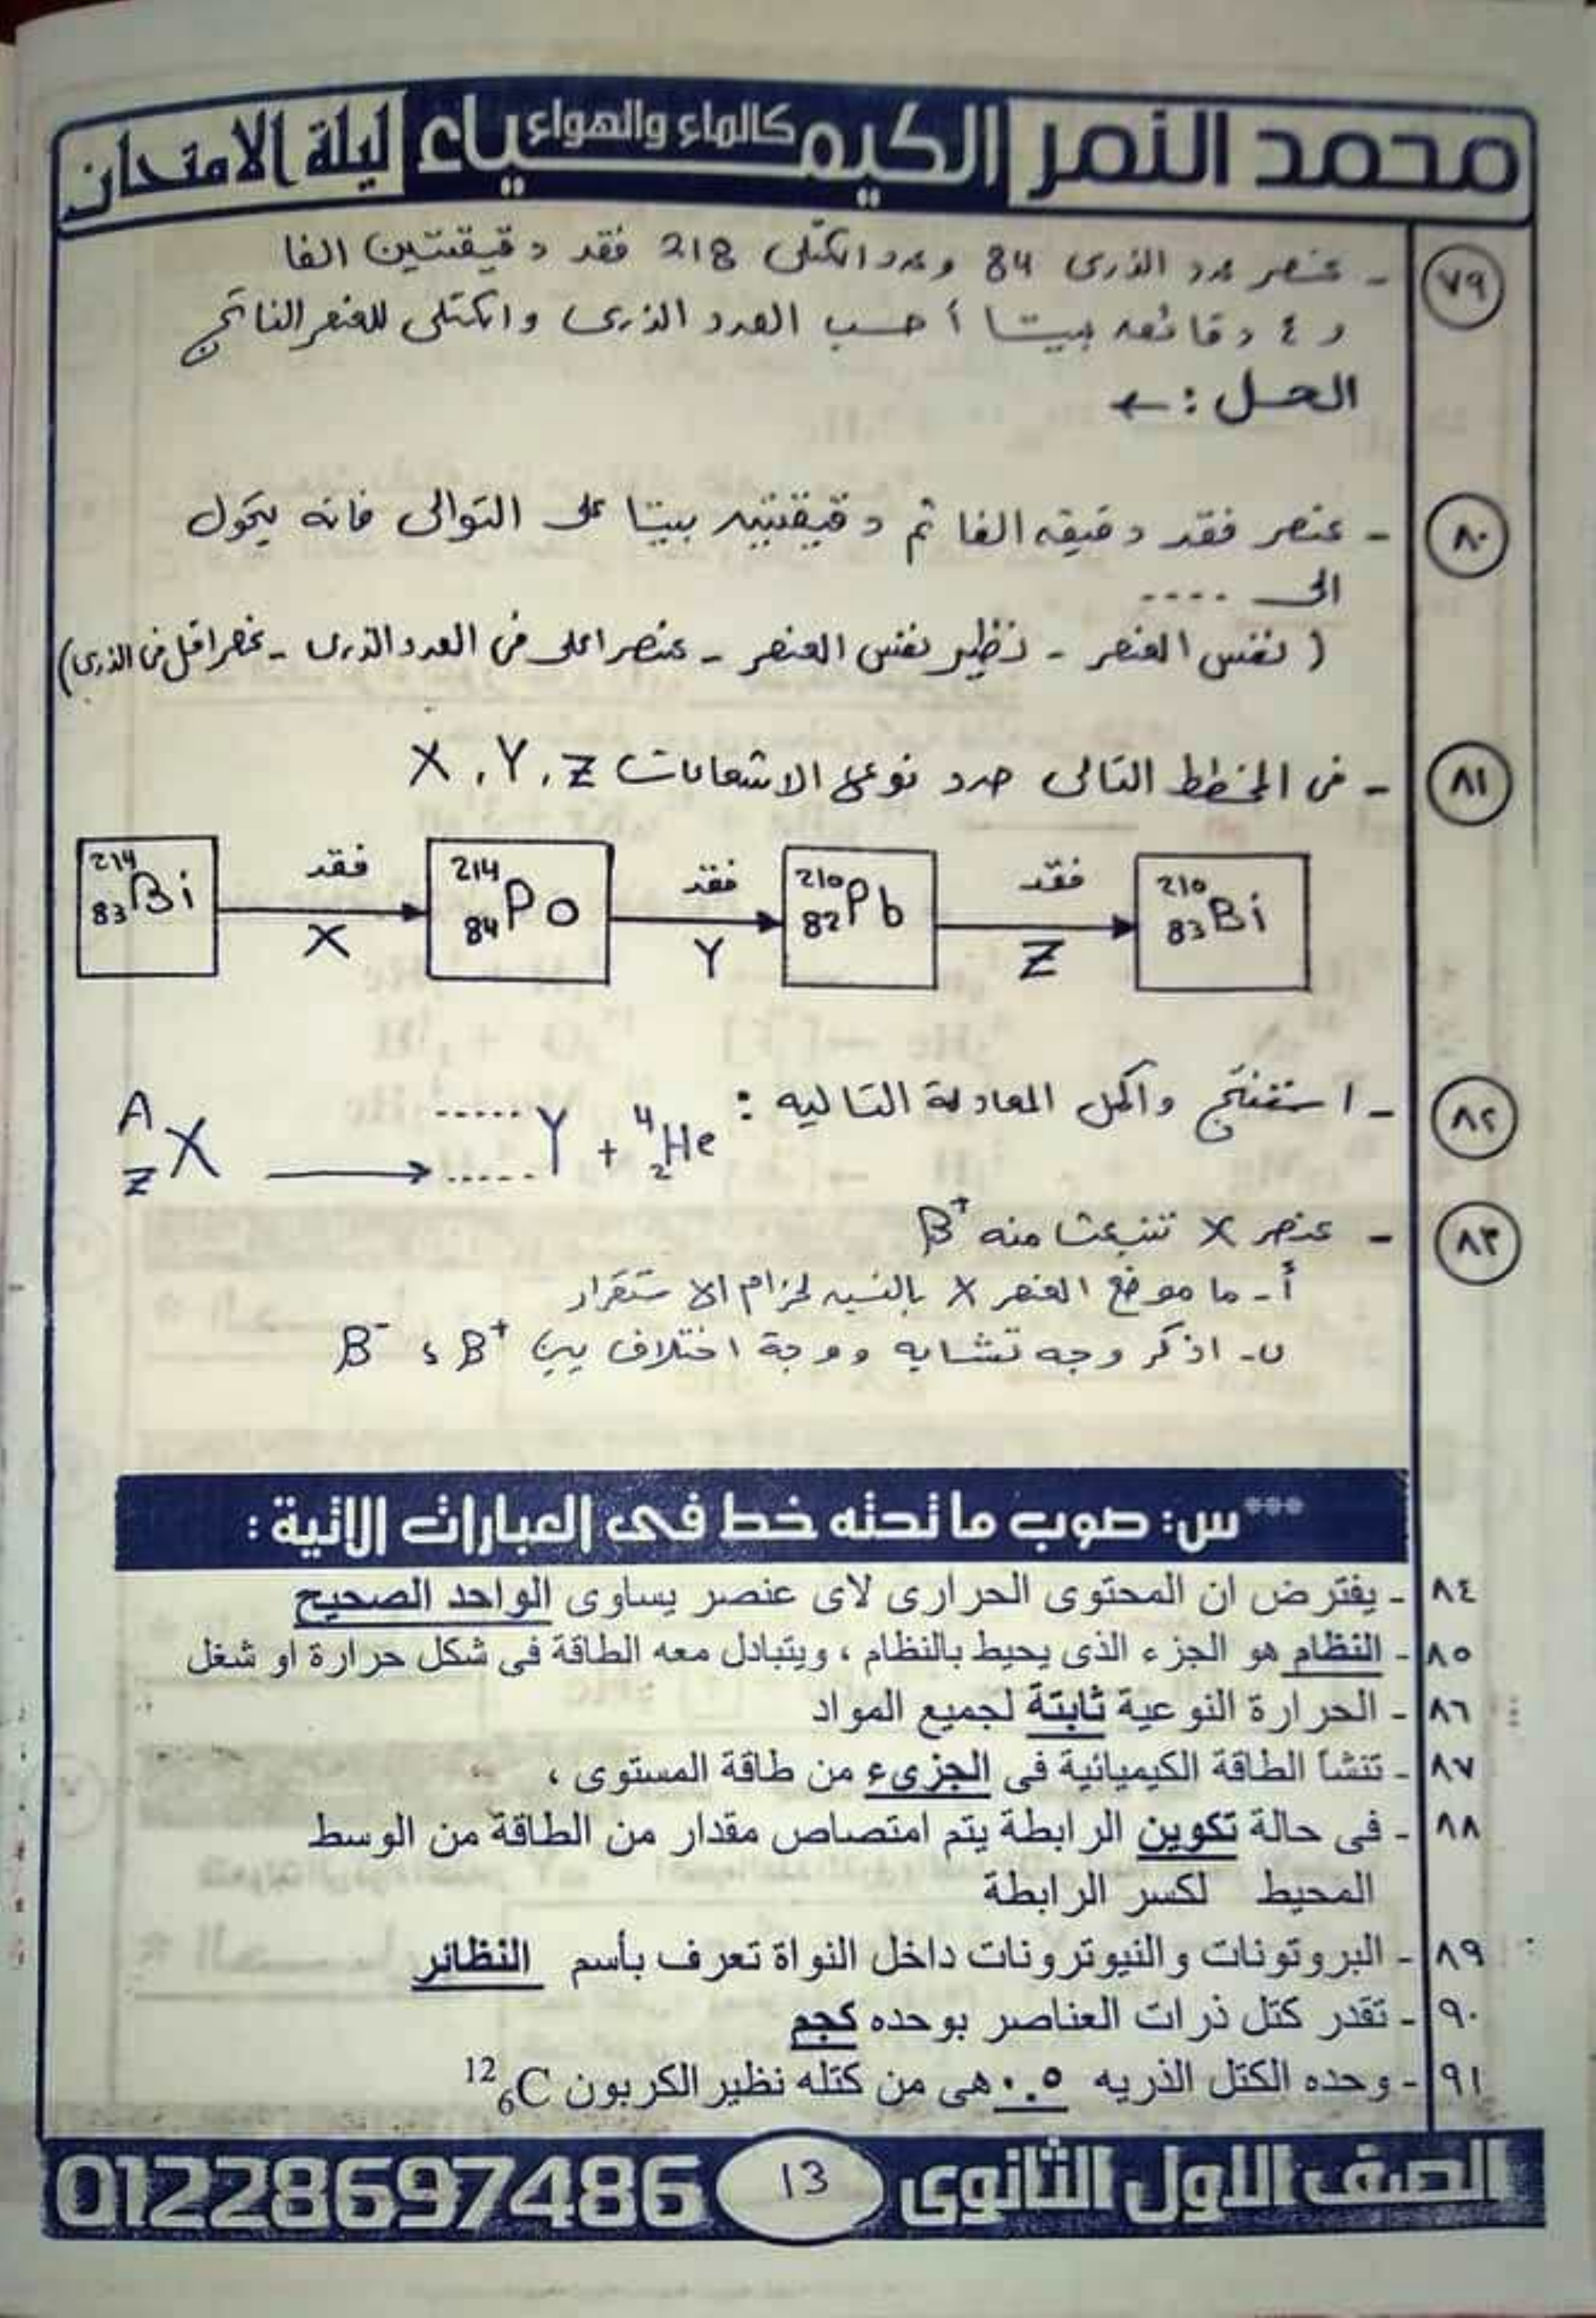 محمد النمر الكيمياء كالماء والهواء ليلة الامتحان
٧٩ - عنصر عدده الذرى 84 وعدده الكتلى 218 فقد دقيقتين الفا
و ٤ دقائق بيتا أحسب العدد الذرى والكتلى للعنصر الناتج
الحل : ←
٨٠ - عنصر فقد دقيقه الفا ثم دقيقتين بيتا على التوالى فانه يتحول
الى ....
( نفس العنصر - نظير نفس العنصر - عنصر اعلى فى العدد الذرى - عنصر اقل فى الذرى )
٨١ - فى المخطط التالى حدد نوع الاشعاعات X , Y , Z
²¹⁴₈₃Bi فقد X ²¹⁴₈₄Po فقد Y ²¹⁰₈₂Pb فقد Z ²¹⁰₈₃Bi
٨٢ - استنتج واكمل المعادلة التاليه :
ᴬ_Z X → ...... ...... Y + ⁴₂He
٨٣ - عنصر X تنبعث منه B⁺
أ - ما موضع العنصر X بالنسبه لحزام الاستقرار
ب - اذكر وجه تشابه ووجة اختلاف بين B⁺ ، B⁻
***س: صوب ما تحته خط فى العبارات الاتية :
٨٤ - يفترض ان المحتوى الحرارى لاى عنصر يساوى الواحد الصحيح
٨٥ - النظام هو الجزء الذى يحيط بالنظام ، ويتبادل معه الطاقة فى شكل حرارة او شغل
٨٦ - الحرارة النوعية ثابتة لجميع المواد
٨٧ - تنشأ الطاقة الكيميائية فى الجزىء من طاقة المستوى ،
٨٨ - فى حالة تكوين الرابطة يتم امتصاص مقدار من الطاقة من الوسط
المحيط لكسر الرابطة
٨٩ - البروتونات والنيوترونات داخل النواة تعرف بأسم النظائر
٩٠ - تقدر كتل ذرات العناصر بوحده كجم
٩١ - وحده الكتل الذريه ٠.٥ هى من كتله نظير الكربون ¹²₆C
الصف الاول الثانوى 13 01228697486